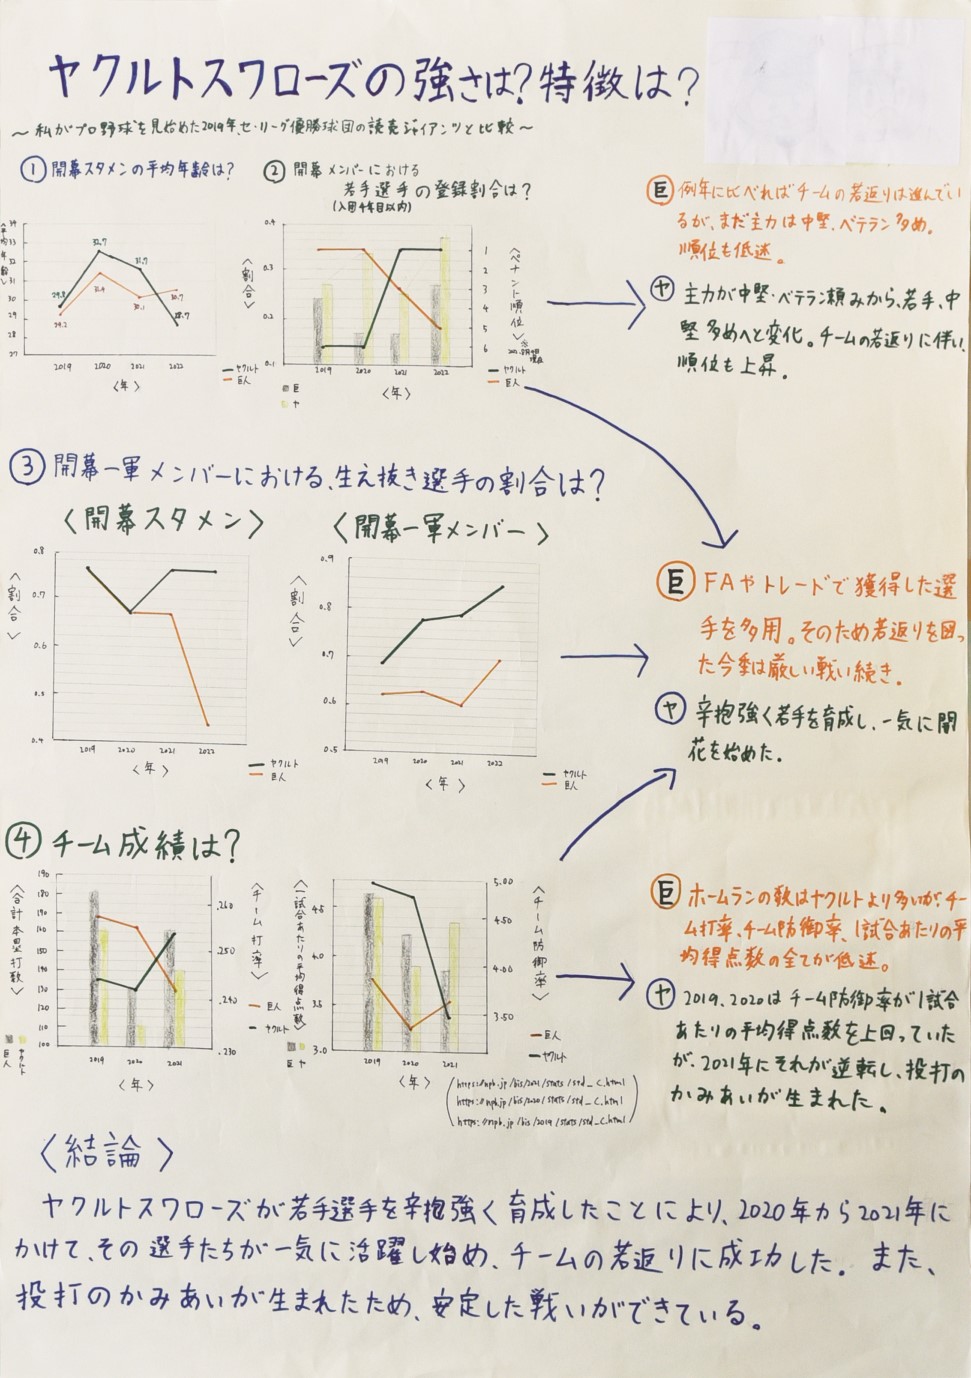 ヤクルトスワローズの強さは?特徴は?
〜私がプロ野球を見始めた2019年、セ・リーグ優勝球団の読売ジャイアンツと比較〜
① 開幕スタメンの平均年齢は?
34
33
32
31
30
29
28
27
〈平均年齢〉
32.7
31.7
29.8
31.4
30.1
30.7
29.2
28.7
2019 2020 2021 2022
〈年〉
ヤクルト
巨人
② 開幕メンバーにおける
若手選手の登録割合は?
(入団4年目以内)
0.4
0.3
0.2
〈割合〉
1
2
3
4
5
6
〈ペナント順位〉
2019 2020 2021 2022
〈年〉
巨
ヤ
ヤクルト
巨人
巨 例年に比べればチームの若返りは進んでい
るが、まだ主力は中堅、ベテラン多め。
順位も低迷。
ヤ 主力が中堅・ベテラン頼みから、若手、中
堅多めへと変化。チームの若返りに伴い、
順位も上昇。
③ 開幕一軍メンバーにおける、生え抜き選手の割合は?
〈開幕スタメン〉
0.8
0.7
0.6
0.5
0.4
〈割合〉
2019 2020 2021 2022
〈年〉
ヤクルト
巨人
〈開幕一軍メンバー〉
0.9
0.8
0.7
0.6
0.5
〈割合〉
2019 2020 2021 2022
〈年〉
ヤクルト
巨人
巨 FAやトレードで獲得した選
手を多用。そのため若返りを図っ
た今季は厳しい戦い続き。
ヤ 辛抱強く若手を育成し、一気に開
花を始めた。
④ チーム成績は?
190
180
160
150
130
120
110
100
〈合計本塁打数〉
.260
.250
.240
.230
〈チーム打率〉
2019 2020 2021
〈年〉
巨人
ヤクルト
巨人
ヤクルト
4.5
4.0
3.5
3.0
〈一試合あたりの平均得点数〉
5.00
4.50
4.00
3.50
〈チーム防御率〉
2019 2020 2021
〈年〉
巨 ヤ
巨人
ヤクルト
https://npb.jp/bis/2021/stats/std_c.html
https://npb.jp/bis/2020/stats/std_c.html
https://npb.jp/bis/2019/stats/std_c.html
巨 ホームランの数はヤクルトより多いが、チー
ム打率、チーム防御率、1試合あたりの平
均得点数の全てが低迷。
ヤ 2019、2020はチーム防御率が1試合
あたりの平均得点数を上回っていた
が、2021年にそれが逆転し、投打の
かみあいが生まれた。
〈結論〉
ヤクルトスワローズが若手選手を辛抱強く育成したことにより、2020年から2021年に
かけて、その選手たちが一気に活躍し始め、チームの若返りに成功した。また、
投打のかみあいが生まれたため、安定した戦いができている。